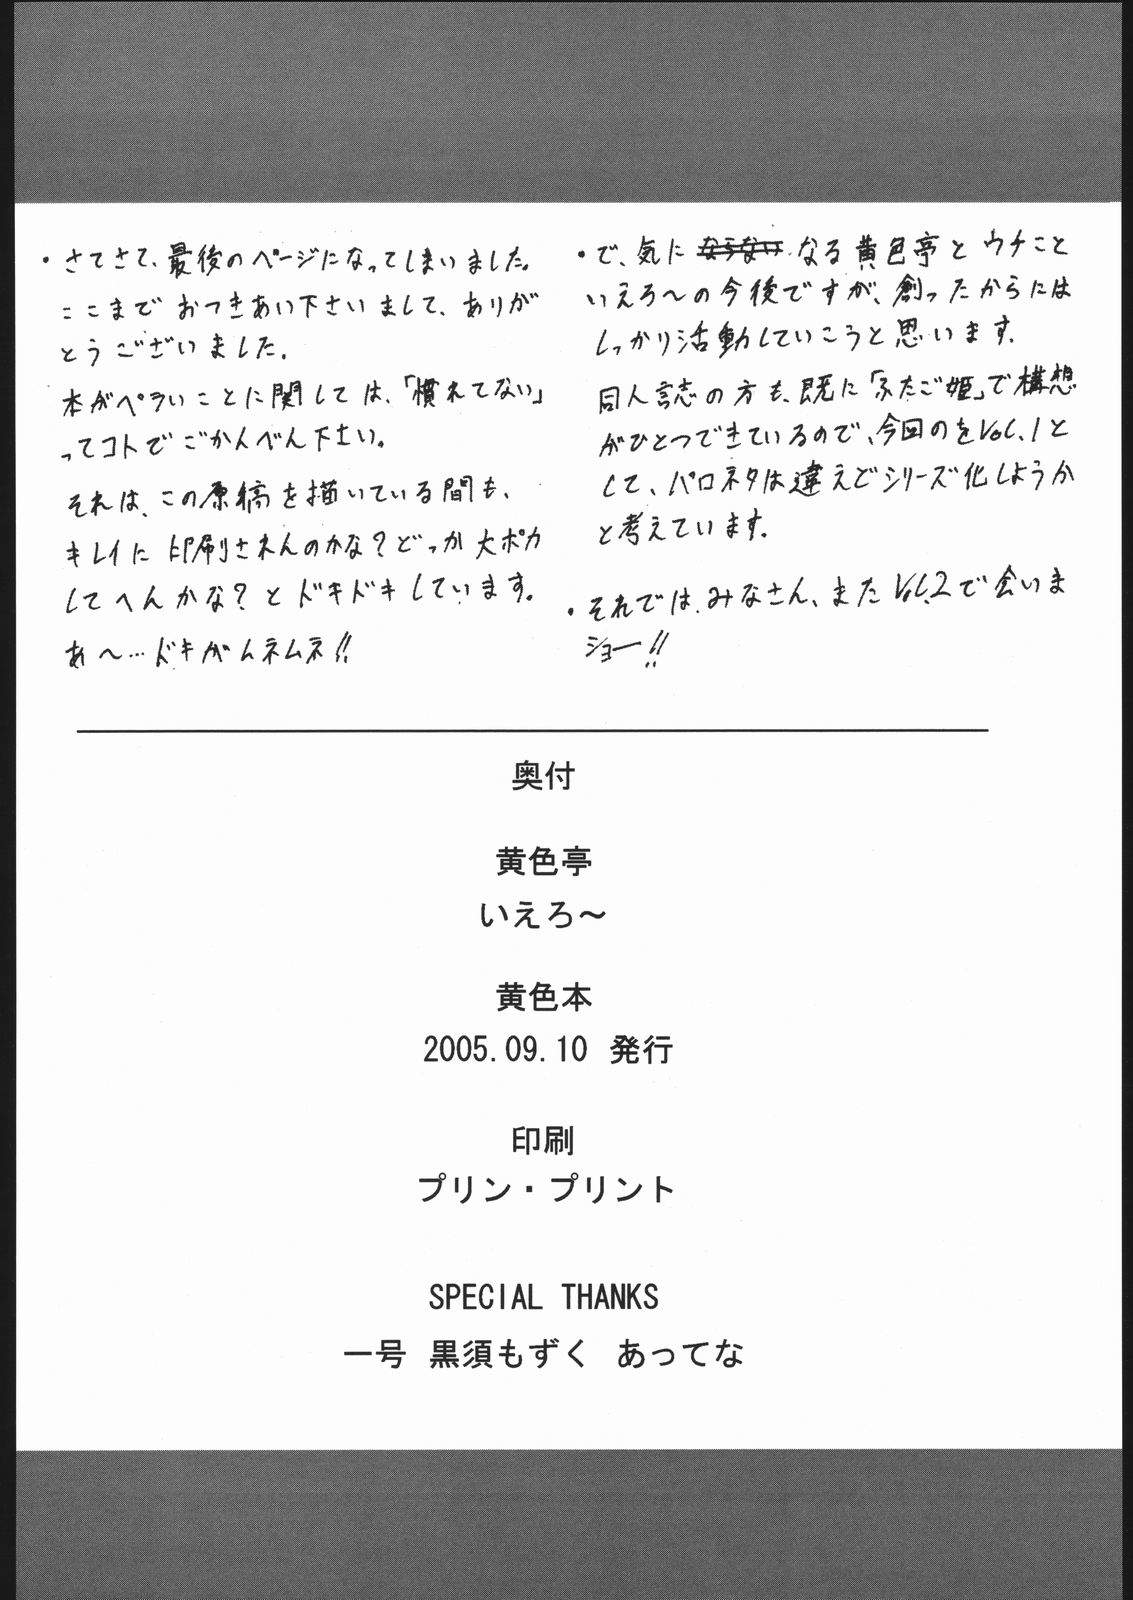 ・さてさて、最後のページになってしまいました。
ここまでおつきあい下さいまして、ありが
とうございました。
本がペラいことに関しては、「慣れてない」
ってコトでごかんべん下さい。
それは、この原稿を描いている間も、
キレイに印刷されんのかな?どっか大ポカ
してへんかな?とドキドキしています。
あ〜…ドキがムネムネ!!
・で、気にならない なる黄色亭とウチこと
いえろ〜の今後ですが、創ったからには
しっかり活動していこうと思います。
同人誌の方も、既に「ふたご姫」で構想
がひとつできているので、今回のをVol.1と
して、パロネタは違えどシリーズ化しようか
と考えています。
・それでは、みなさん、またVol.2で会いま
ショー!!
奥付
黄色亭
いえろ〜
黄色本
2005.09.10 発行
印刷
プリン・プリント
SPECIAL THANKS
一号 黒須もずく あってな